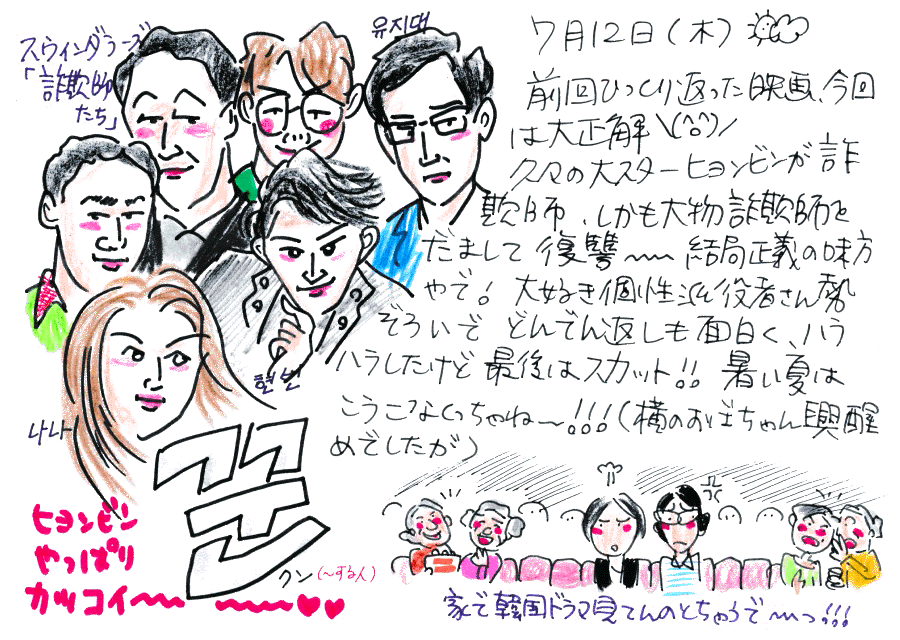 スウィンダラーズ
「詐欺師
たち」
유지태
7月12日(木)
前回ひっくり返った映画、今回
は大正解\(^o^)/
久々の大スターヒョンビンが詐
欺師、しかも大物詐欺師を
だまして復讐〜〜結局正義の味方
やで!大好き個性派役者さん勢
ぞろいでどんでん返しも面白く、ハラ
ハラしたけど最後はスカット!!暑い夏は
こうこなくっちゃね〜!!!(横のおばちゃん興醒
めでしたが)
현빈
나나
꾼
クン(〜する人)
ヒョンビン
やっぱり
カッコイ〜〜 〜〜〜♥♥
家で韓国ドラマ見てんのとちゃうで〜っ!!!